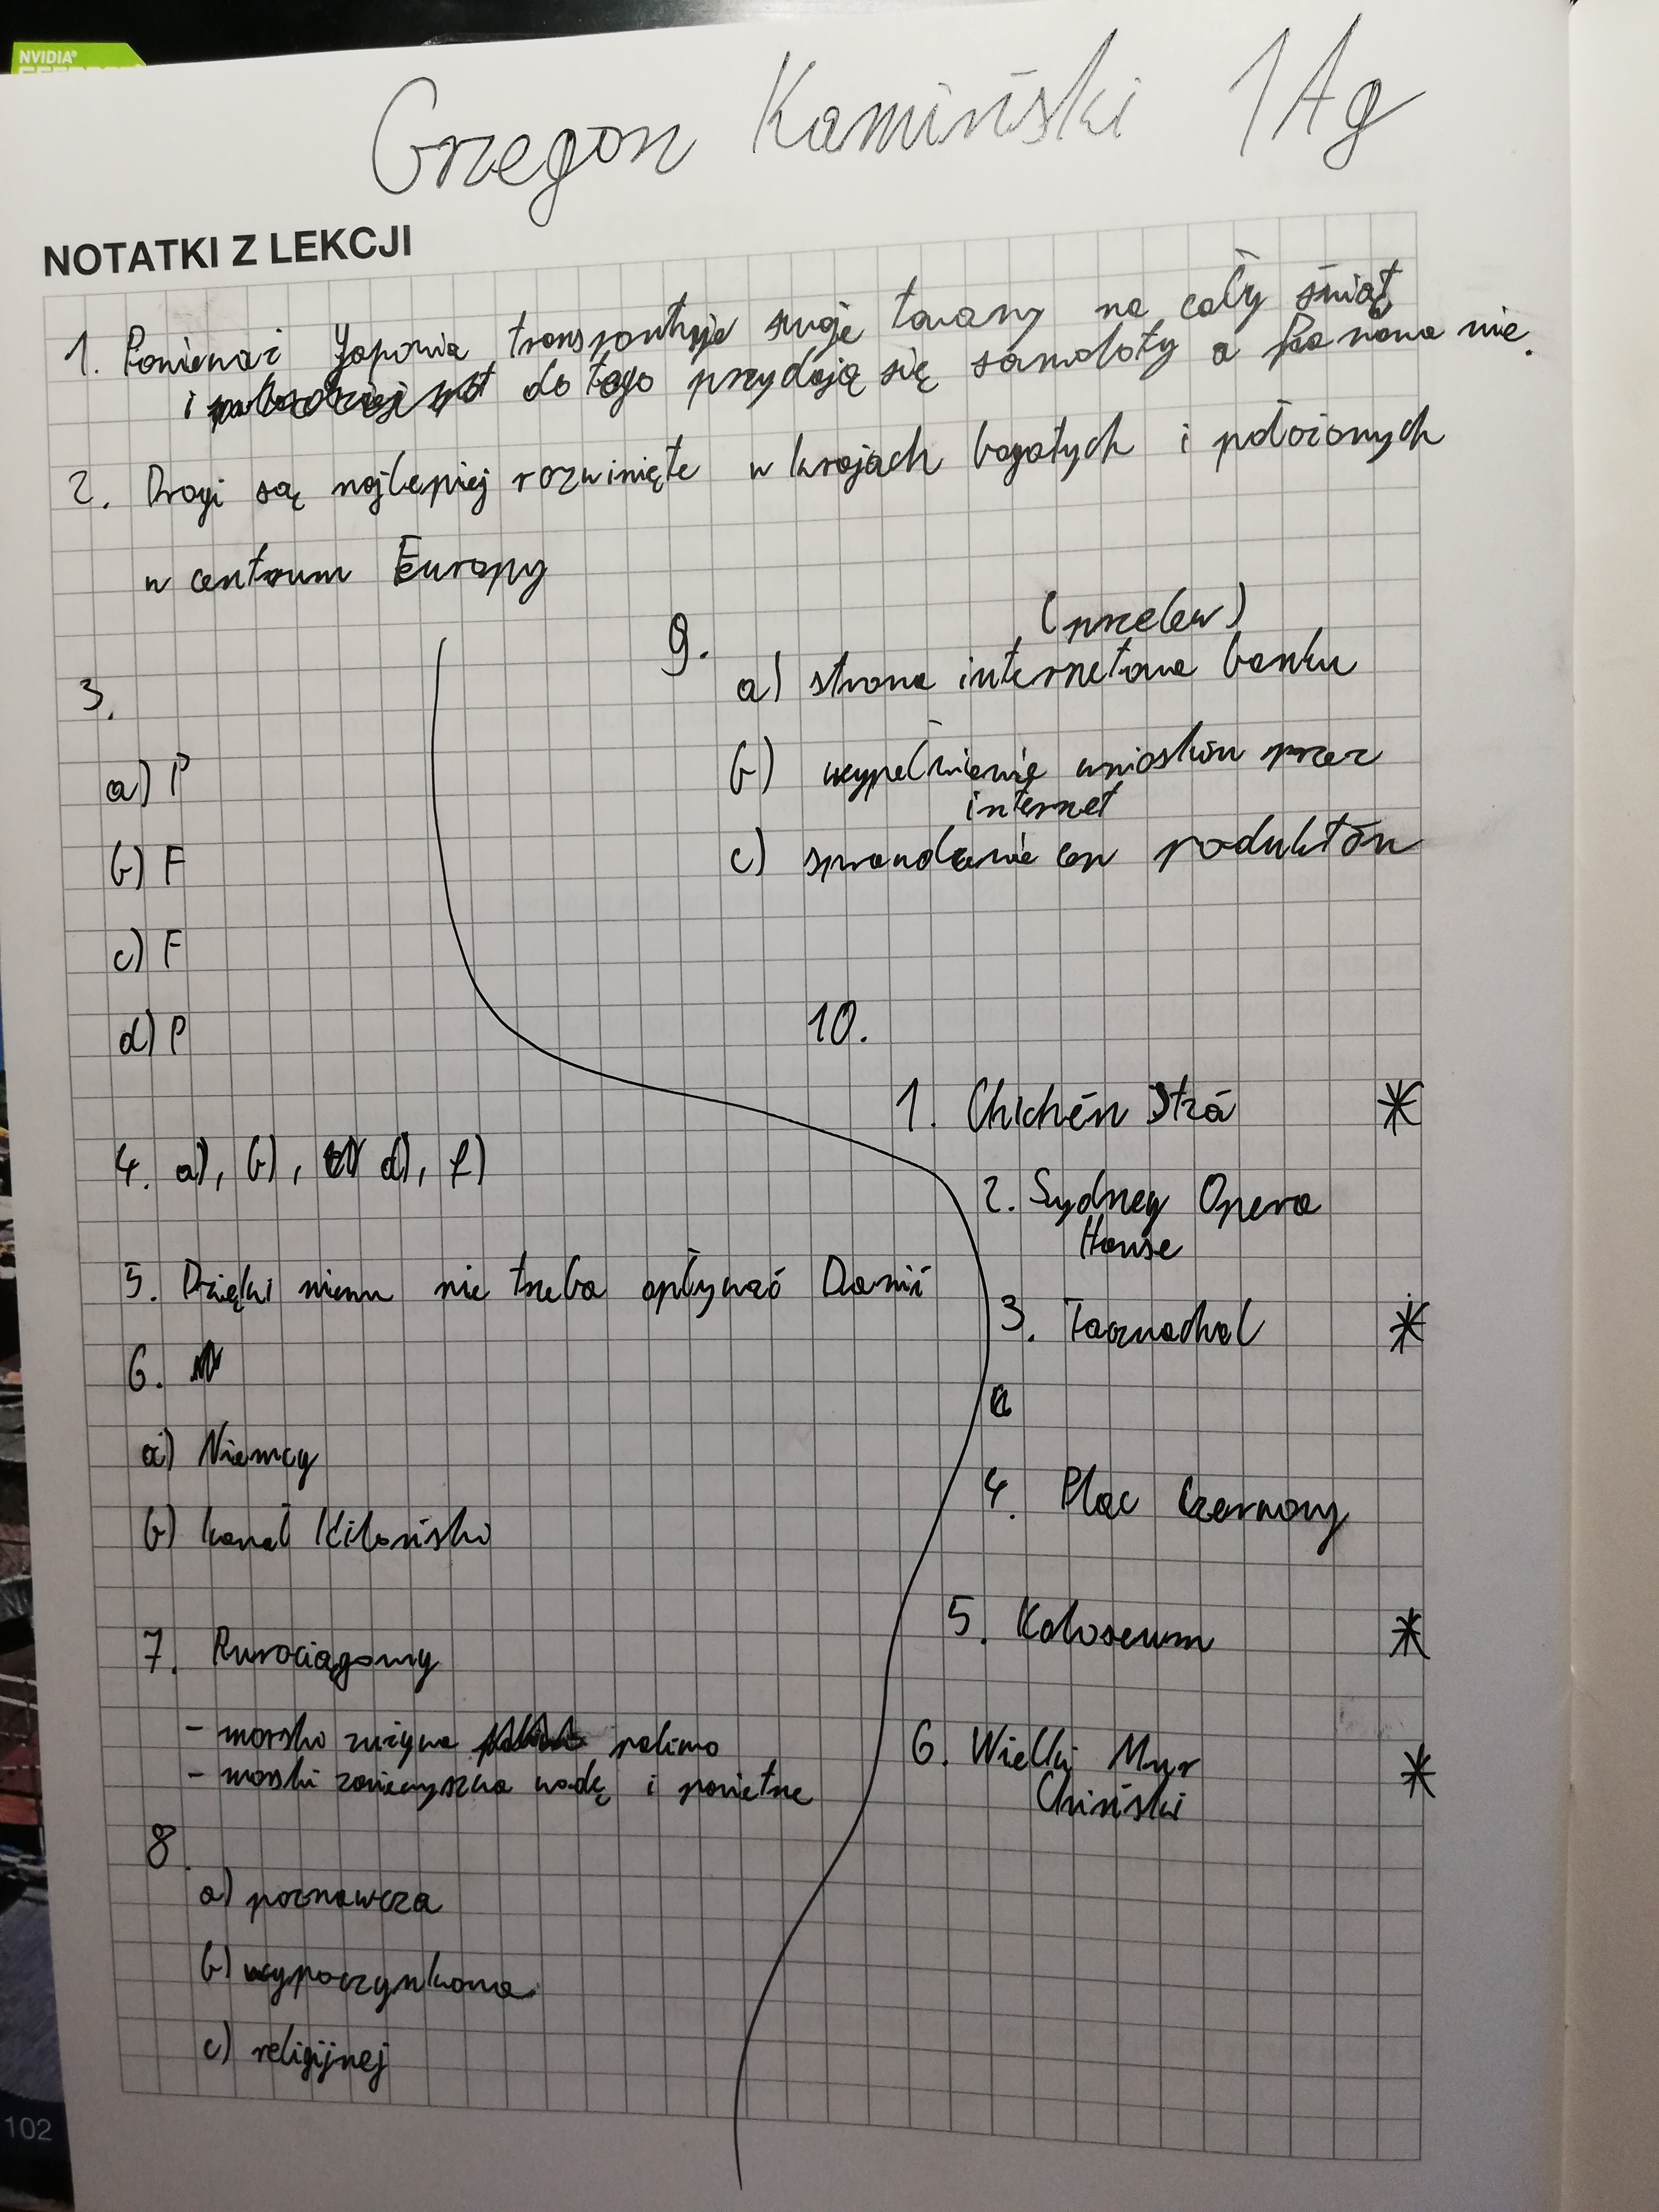 NVIDIA®
Grzegorz Kamiński 1Ag
NOTATKI Z LEKCJI
1. Ponieważ Japonia transportuje swoje towary na cały świat
i do tego przydają się samoloty a Panama nie.
2. Drogi są najlepiej rozwinięte w krajach bogatych i położonych
w centrum Europy
3.
a) P
b) F
c) F
d) P
4. a), b), d), f)
5. Dzięki niemu nie trzeba opływać Danii
6.
a) Niemcy
b) kanał Kiloński
7. Rurociągowy
- morski zużywa paliwo
- morski zanieczyszcza wodę i powietrze
8.
a) poznawcza
b) wypoczynkowa
c) religijnej
9.
(przelew)
a) strona internetowa banku
b) wypełnienie wniosków przez
internet
c) sprawdzanie cen produktów
10.
1. Chichén Itzá *
2. Sydney Opera
House
3. Tadżmahal *
4. Plac Czerwony
5. Koloseum *
6. Wielki Mur
Chiński *
102